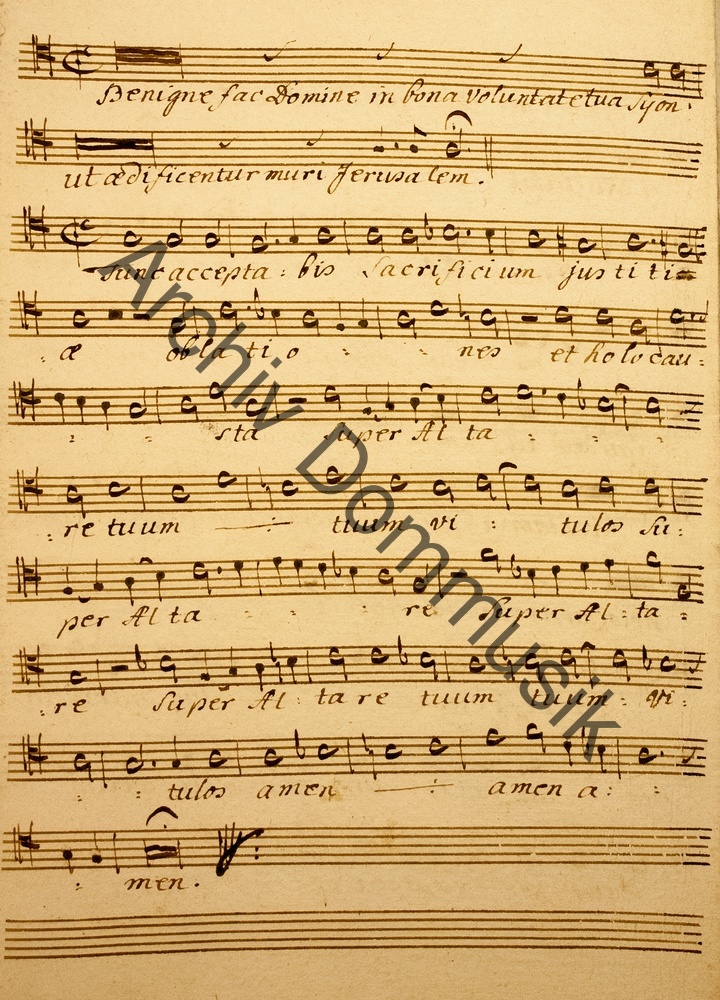 Benigne fac Domine in bona voluntate tua Syon.
ut ædificentur muri Jerusalem.
Tunc accepta : bis Sacrificium justiti
: æ oblatio : : nes et holocau :
: : sta super Alta : : :
: re tuum —:— tuum vi : tulos Su :
per Alta : : : re super Al : ta :
: re super Al : ta re tuum tuum : vi :
: : tulos amen —:— amen a : : :
: men.
Archiv Dommusik